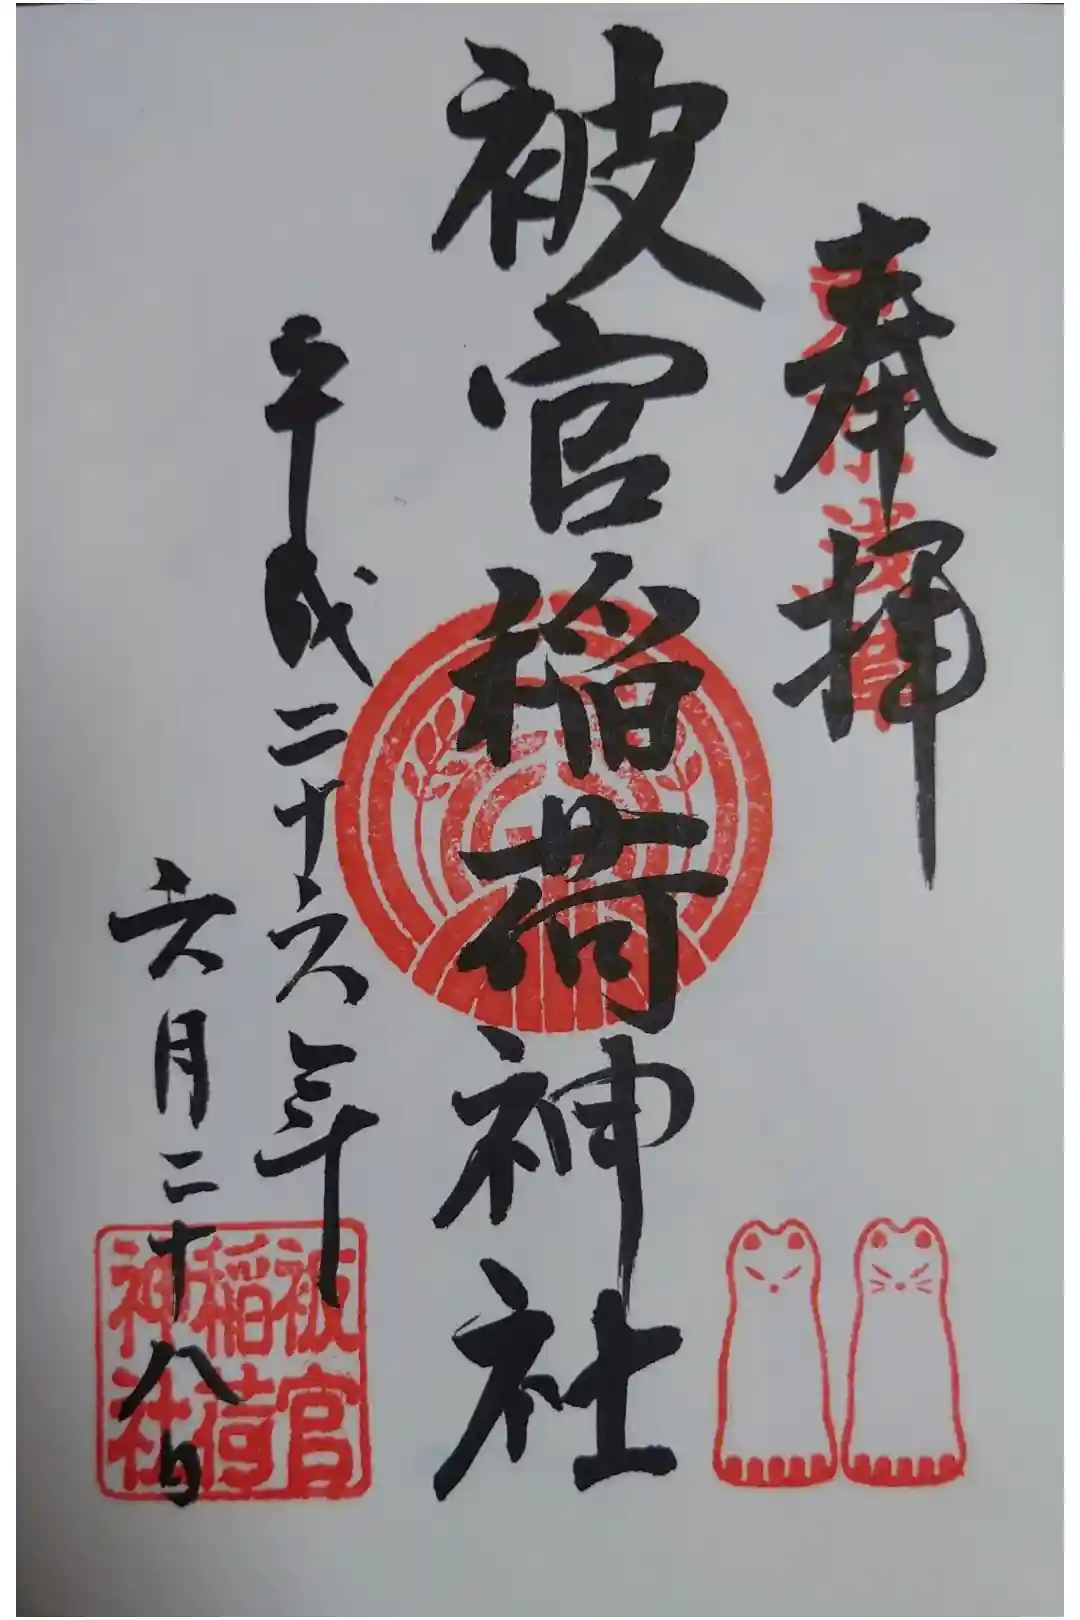 奉拝
東京浅草
被官稲荷神社
平成二十六年
六月二十八日
被官
稲荷
神社